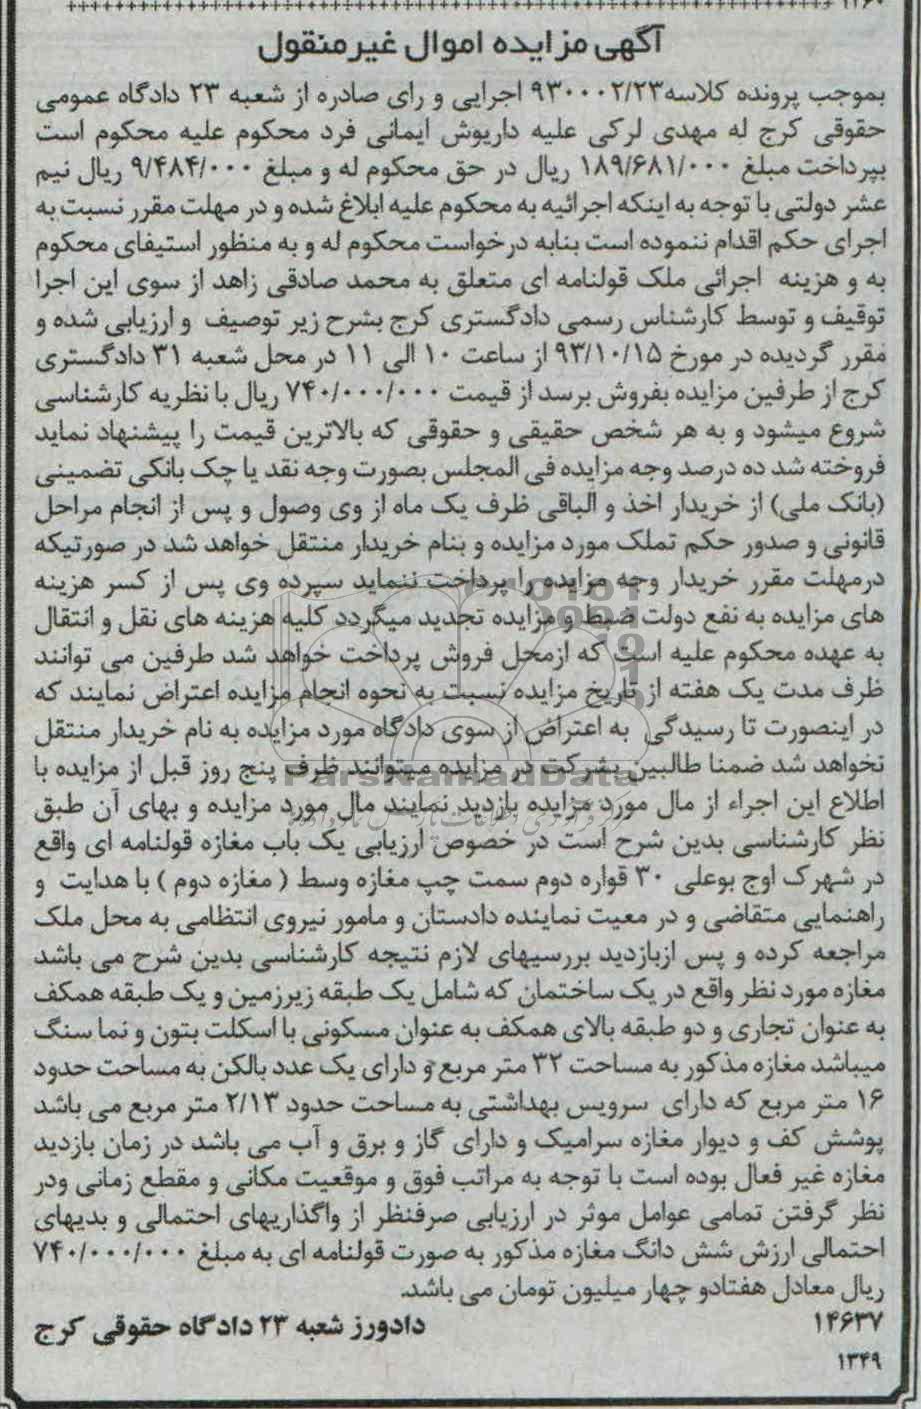 ۱۲۶۰
آگهی مزایده اموال غیرمنقول
بموجب پرونده کلاسه۹۳۰۰۰۲/۲۳ اجرایی و رای صادره از شعبه ۲۳ دادگاه عمومی
حقوقی کرج له مهدی لرکی علیه داریوش ایمانی فرد محکوم علیه محکوم است
بپرداخت مبلغ ۱۸۹/۶۸۱/۰۰۰ ریال در حق محکوم له و مبلغ ۹/۴۸۴/۰۰۰ ریال نیم
عشر دولتی با توجه به اینکه اجرائیه به محکوم علیه ابلاغ شده و در مهلت مقرر نسبت به
اجرای حکم اقدام ننموده است بنابه درخواست محکوم له و به منظور استیفای محکوم
به و هزینه اجرائی ملک قولنامه ای متعلق به محمد صادقی زاهد از سوی این اجرا
توقیف و توسط کارشناس رسمی دادگستری کرج بشرح زیر توصیف و ارزیابی شده و
مقرر گردیده در مورخ ۹۳/۱۰/۱۵ از ساعت ۱۰ الی ۱۱ در محل شعبه ۳۱ دادگستری
کرج از طرفین مزایده بفروش برسد از قیمت ۷۴۰/۰۰۰/۰۰۰ ریال با نظریه کارشناسی
شروع میشود و به هر شخص حقیقی و حقوقی که بالاترین قیمت را پیشنهاد نماید
فروخته شد ده درصد وجه مزایده فی المجلس بصورت وجه نقد یا چک بانکی تضمینی
(بانک ملی) از خریدار اخذ و الباقی ظرف یک ماه از وی وصول و پس از انجام مراحل
قانونی و صدور حکم تملک مورد مزایده و بنام خریدار منتقل خواهد شد در صورتیکه
درمهلت مقرر خریدار وجه مزایده را پرداخت ننماید سپرده وی پس از کسر هزینه
های مزایده به نفع دولت ضبط و مزایده تجدید میگردد کلیه هزینه های نقل و انتقال
به عهده محکوم علیه است که ازمحل فروش پرداخت خواهد شد طرفین می توانند
ظرف مدت یک هفته از تاریخ مزایده نسبت به نحوه انجام مزایده اعتراض نمایند که
در اینصورت تا رسیدگی به اعتراض از سوی دادگاه مورد مزایده به نام خریدار منتقل
نخواهد شد ضمنا طالبین بشرکت در مزایده میتوانند ظرف پنج روز قبل از مزایده با
ParsNamadData
اطلاع این اجراء از مال مورد مزایده بازدید نمایند مال مورد مزایده و بهای آن طبق
نظر کارشناسی بدین شرح است در خصوص ارزیابی یک باب مغازه قولنامه ای واقع
در شهرک اوج بوعلی ۳۰ قواره دوم سمت چپ مغازه وسط ( مغازه دوم ) با هدایت و
راهنمایی متقاضی و در معیت نماینده دادستان و مامور نیروی انتظامی به محل ملک
مراجعه کرده و پس ازبازدید بررسیهای لازم نتیجه کارشناسی بدین شرح می باشد
مغازه مورد نظر واقع در یک ساختمان که شامل یک طبقه زیرزمین و یک طبقه همکف
به عنوان تجاری و دو طبقه بالای همکف به عنوان مسکونی با اسکلت بتون و نما سنگ
میباشد مغازه مذکور به مساحت ۳۲ متر مربع و دارای یک عدد بالکن به مساحت حدود
۱۶ متر مربع که دارای سرویس بهداشتی به مساحت حدود ۲/۱۳ متر مربع می باشد
پوشش کف و دیوار مغازه سرامیک و دارای گاز و برق و آب می باشد در زمان بازدید
مغازه غیر فعال بوده است با توجه به مراتب فوق و موقعیت مکانی و مقطع زمانی ودر
نظر گرفتن تمامی عوامل موثر در ارزیابی صرفنظر از واگذاریهای احتمالی و بدیهای
احتمالی ارزش شش دانگ مغازه مذکور به صورت قولنامه ای به مبلغ ۷۴۰/۰۰۰/۰۰۰
ریال معادل هفتادو چهار میلیون تومان می باشد.
۱۴۶۳۷
دادورز شعبه ۲۳ دادگاه حقوقی کرج
۱۳۴۹